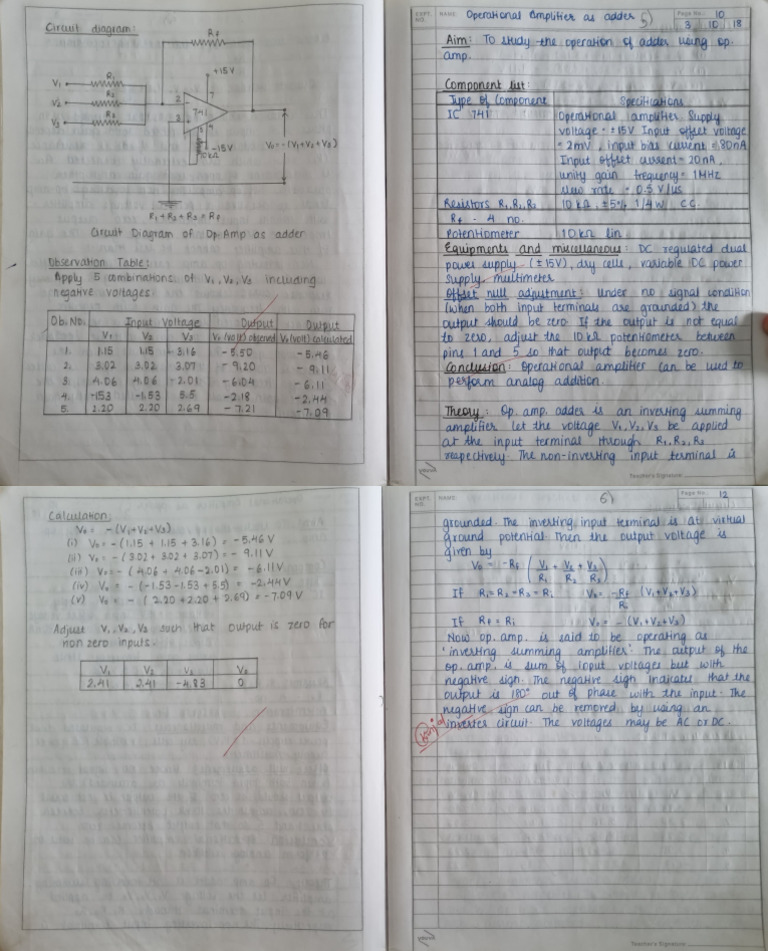 Circuit diagram:
Rf
+15V
V1
R1
V2
R2
V3
R3
2
3
7
741
-15V
10kΩ
V0 = -(V1+V2+V3)
R1 = R2 = R3 = RF
Circuit Diagram of Op Amp as adder
Observation Table:
Apply 5 combinations of V1, V2, V3 including
negative voltages
Ob. No. Input Voltage Output Output
V1 V2 V3 V0 (volt) observed V0 (volt) calculated
1. 1.15 1.15 3.16 -5.50 -5.46
2. 3.02 3.02 3.07 -9.20 -9.11
3. 4.06 4.06 -2.01 -6.04 -6.11
4. -1.53 -1.53 5.5 -2.18 -2.44
5. 2.20 2.20 2.69 -7.21 -7.09
EXPT. NO. NAME: Operational Amplifier as adder 5) Page No. 10
3 10 18
Aim: To study the operation of adder using op.
amp.
Component list:
Type of Component Specifications
IC 741 Operational amplifier Supply
voltage = ±15V Input offset voltage
= 2mV, input bias current = 80nA
Input offset current = 20nA,
unity gain frequency = 1MHz
slew rate = 0.5 V/μs
Resistors R1, R2, R3 10 kΩ, ±5% 1/4 W C.C.
Rf - 4 no.
Potentiometer 10 kΩ lin
Equipments and miscellaneous: DC regulated dual
power supply (±15V), dry cells, variable DC power
supply multimeter
Offset null adjustment: Under no signal condition
(when both input terminals are grounded) the
output should be zero. If the output is not equal
to zero, adjust the 10 kΩ potentiometer between
pins 1 and 5 so that output becomes zero.
Conclusion: Operational amplifier can be used to
perform analog addition.
Theory: Op. amp. adder is an inverting summing
amplifier. Let the voltage V1, V2, V3 be applied
at the input terminal through R1, R2, R3
respectively. The non-inverting input terminal is
Teacher's Signature
Calculation:
V0 = -(V1+V2+V3)
(i) V0 = -(1.15 + 1.15 + 3.16) = -5.46 V
(ii) V0 = -(3.02 + 3.02 + 3.07) = -9.11 V
(iii) V0 = -(4.06 + 4.06 - 2.01) = -6.11 V
(iv) V0 = -(-1.53 - 1.53 + 5.5) = -2.44 V
(v) V0 = -(2.20 + 2.20 + 2.69) = -7.09 V
Adjust V1, V2, V3 such that output is zero for
non zero inputs.
V1 V2 V3 V0
2.41 2.41 -4.83 0
EXPT. NO. NAME: 6) Page No. 12
grounded. The inverting input terminal is at virtual
ground potential. Then the output voltage is
given by
V0 = -Rf (V1/R1 + V2/R2 + V3/R3)
If R1 = R2 = R3 = Ri V0 = -Rf/Ri (V1+V2+V3)
If Rf = Ri V0 = -(V1+V2+V3)
Now op. amp. is said to be operating as
'inverting summing amplifier'. The output of the
op. amp. is sum of input voltages but with
negative sign. The negative sign indicates that the
output is 180° out of phase with the input. The
negative sign can be removed by using an
inverter circuit. The voltages may be AC or DC.
Teacher's Signature